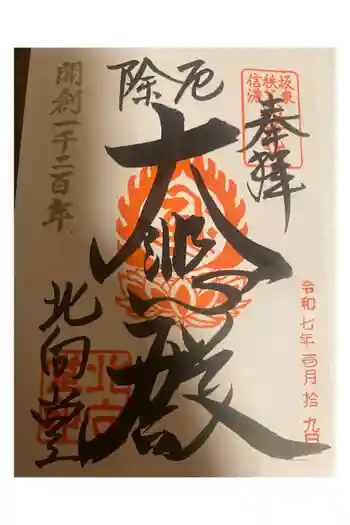 坂東
秩父
信濃
奉拝
厄除
大悲殿
開創一千二百年
北向堂
令和七年壱月拾九日